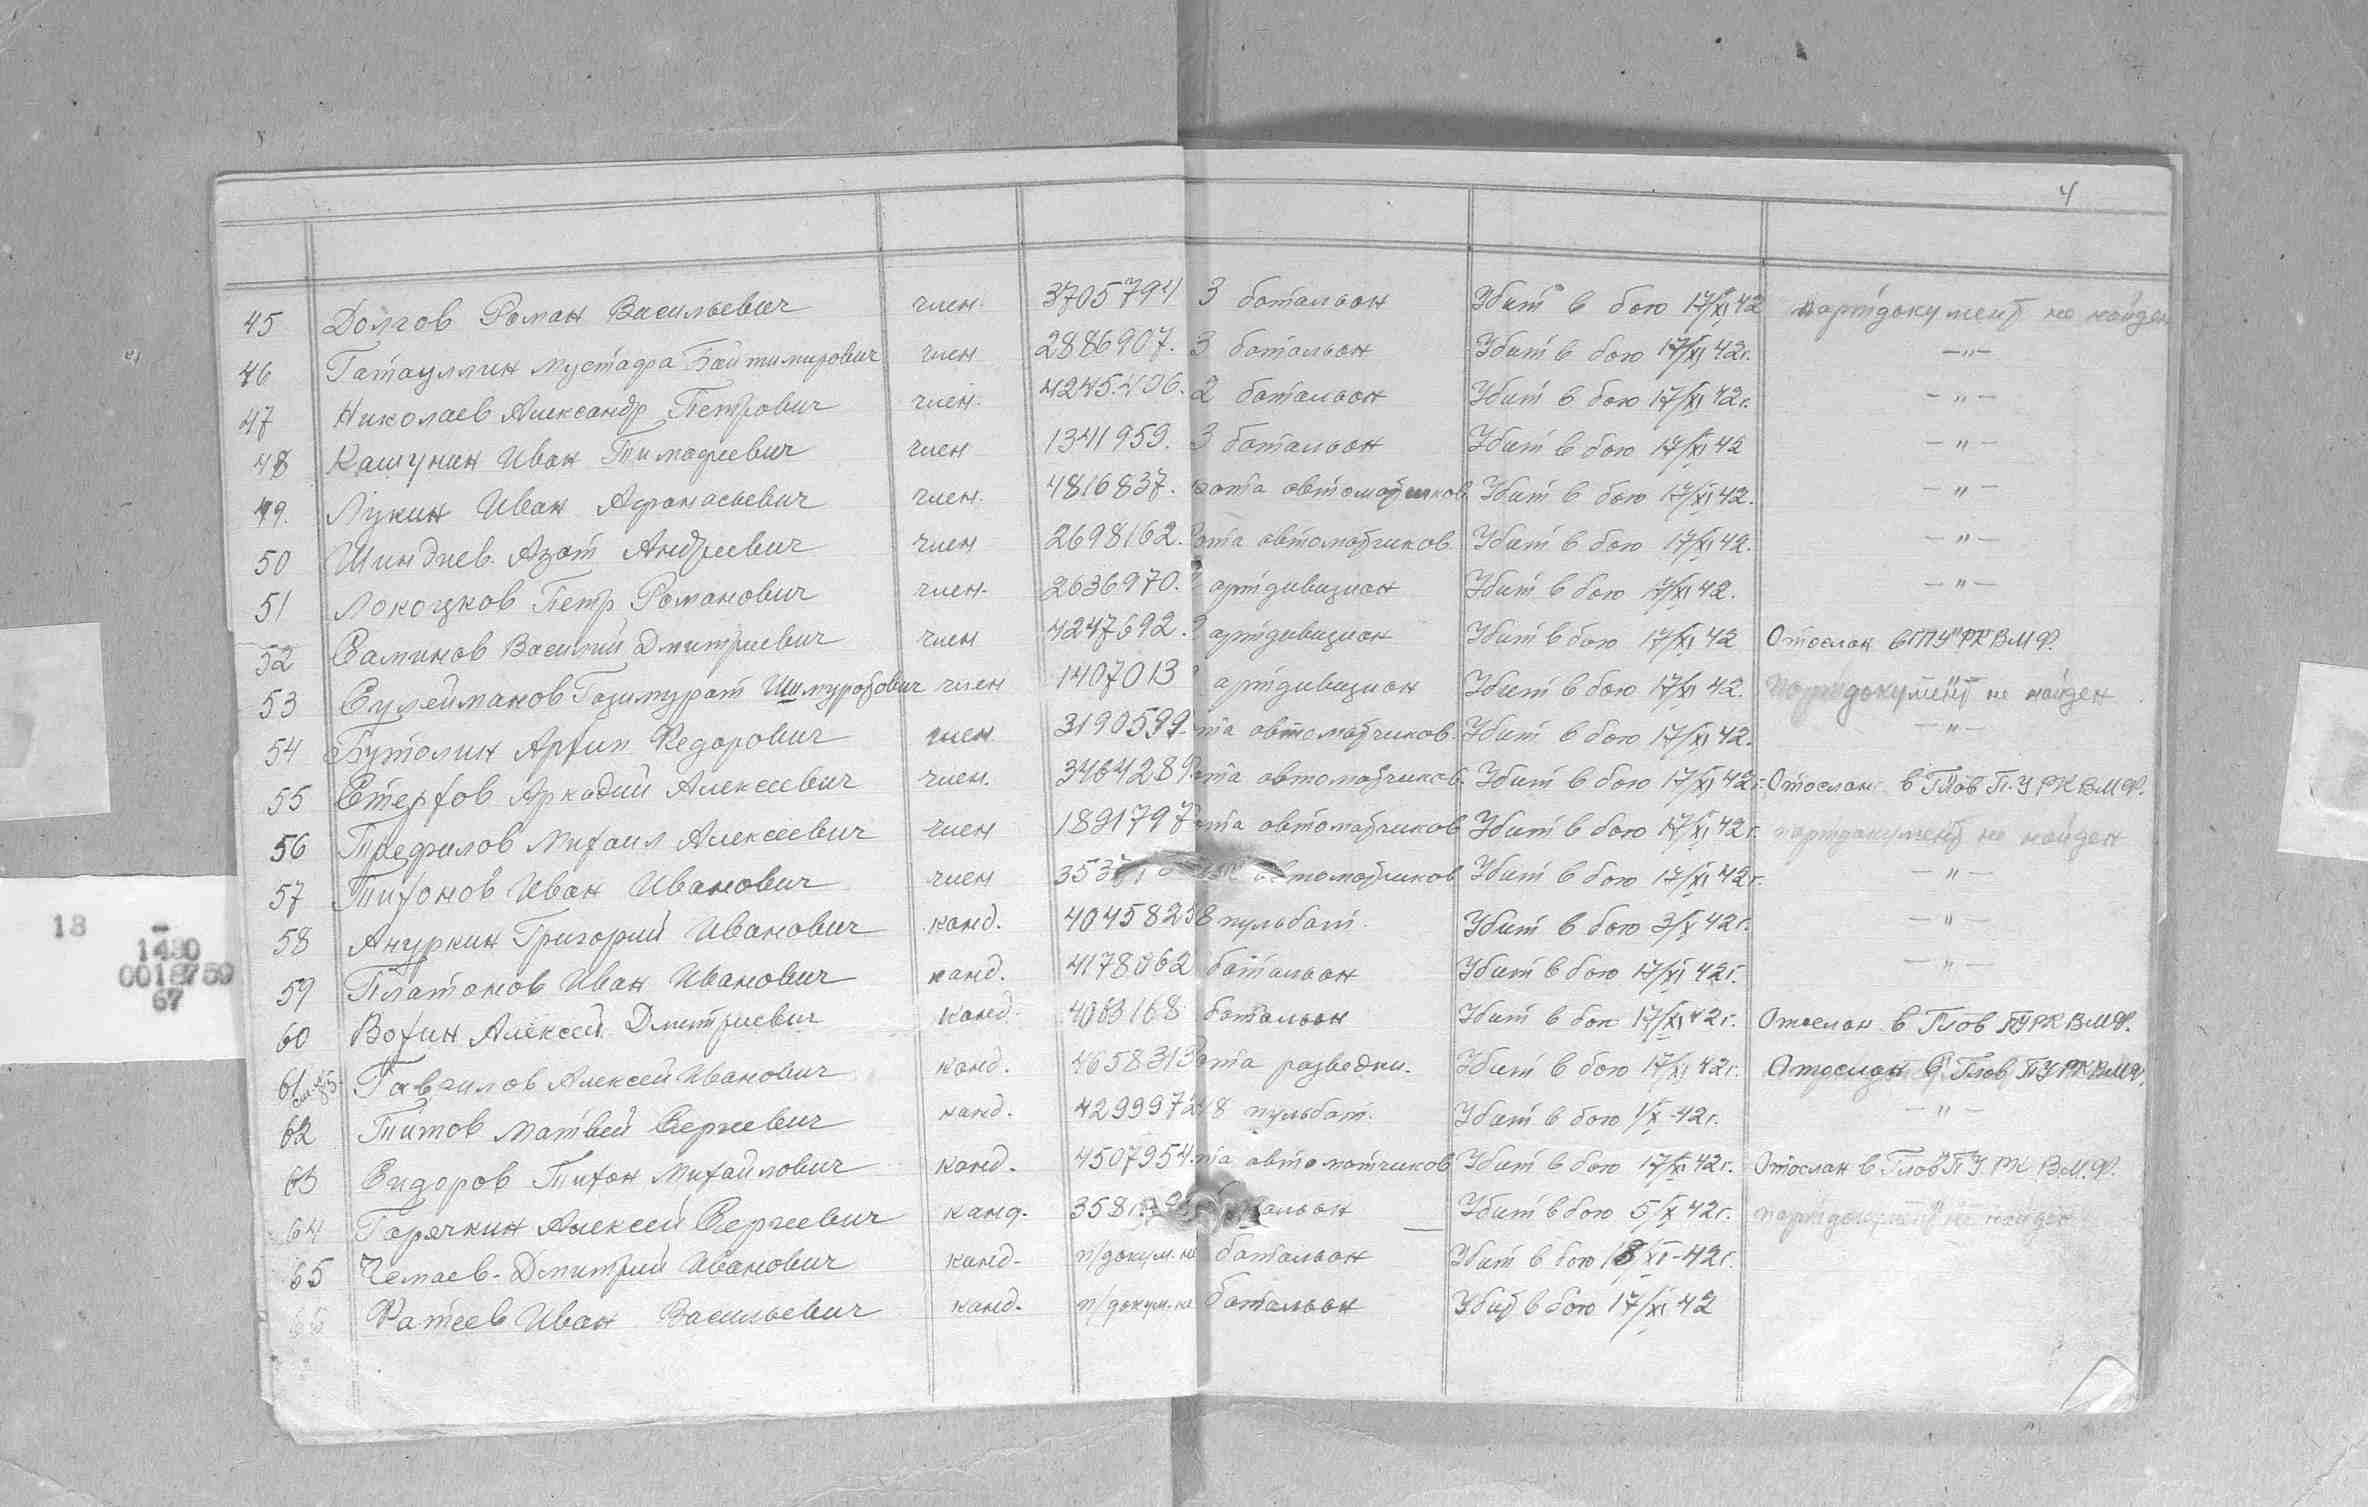 4
45 Долгов Роман Васильевич член 3705794 3 батальон Убит в бою 17/XI 42 партдокумент не найден
46 Гатауллин Мустафа Байтимирович член 2886907. 3 батальон Убит в бою 17/XI 42г. —"—
47 Николаев Александр Петрович член 4245406. 2 батальон Убит в бою 17/XI 42г. —"—
48 Кашунин Иван Тимофеевич член 1341959. 3 батальон Убит в бою 17/XI 42 —"—
49. Лукин Иван Афанасьевич член. 4816837. рота автоматчиков Убит в бою 17/XI 42. —"—
50 Шиндяев Азат Андреевич член 2698162. рота автоматчиков Убит в бою 17/XI 42. —"—
51 Локоцков Петр Романович член. 2636970. артдивизион Убит в бою 17/XI 42. —"—
52 Саминов Василий Дмитриевич член 4247692. артдивизион Убит в бою 17/XI 42 Отослан в ГПУ РК ВМФ.
53 Сулейманов Газимурат Ишмуратович член 1407013 артдивизион Убит в бою 17/XI 42. Партдокумент не найден
54 Бутолин Архип Федорович член 3190599. та автоматчиков. Убит в бою 17/XI 42. —"—
55 Стерхов Аркадий Алексеевич член. 3464289 та автоматчиков. Убит в бою 17/XI 42г. Отослан в Глав П.У РК ВМФ.
56 Трефилов Михаил Алексеевич член 1891797 ота автоматчиков Убит в бою 17/XI 42г. партдокумент не найден
57 Тихонов Иван Иванович член 353 автоматчиков Убит в бою 17/XI 42г. —"—
58 Ануркин Григорий Иванович канд. 4045823 8 пульбат. Убит в бою 3/X 42г. —"—
59 Платонов Иван Иванович канд. 4178062 батальон Убит в бою 17/XI 42г. —"—
60 Вохин Алексей Дмитриевич канд. 4063168 батальон Убит в бою 17/XI 42г. Отослан в Глав ПУ РК ВМФ.
61 Гаврилов Алексей Иванович канд. 4658313 ота разведки. Убит в бою 17/XI 42г. Отослан в Глав ПУ РК ВМФ.
62 Титов Матвей Сергеевич канд. 4299972 48 пульбат. Убит в бою 1/X-42г. —"—
63 Сидоров Тихон Михайлович канд. 4507954. та автоматчиков Убит в бою 17/XI 42г. Отослан в Глав ПУ РК ВМФ.
64 Горячкин Алексей Сергеевич канд. 358 батальон Убит в бою 5/X 42г. партдокумент не найден
65 Чемаев Дмитрий Иванович канд. п/докум. не батальон Убит в бою 18/XI-42г.
66 Фатеев Иван Васильевич канд. п/докум. не батальон Убит в бою 17/XI 42
13
1480
0018759
67